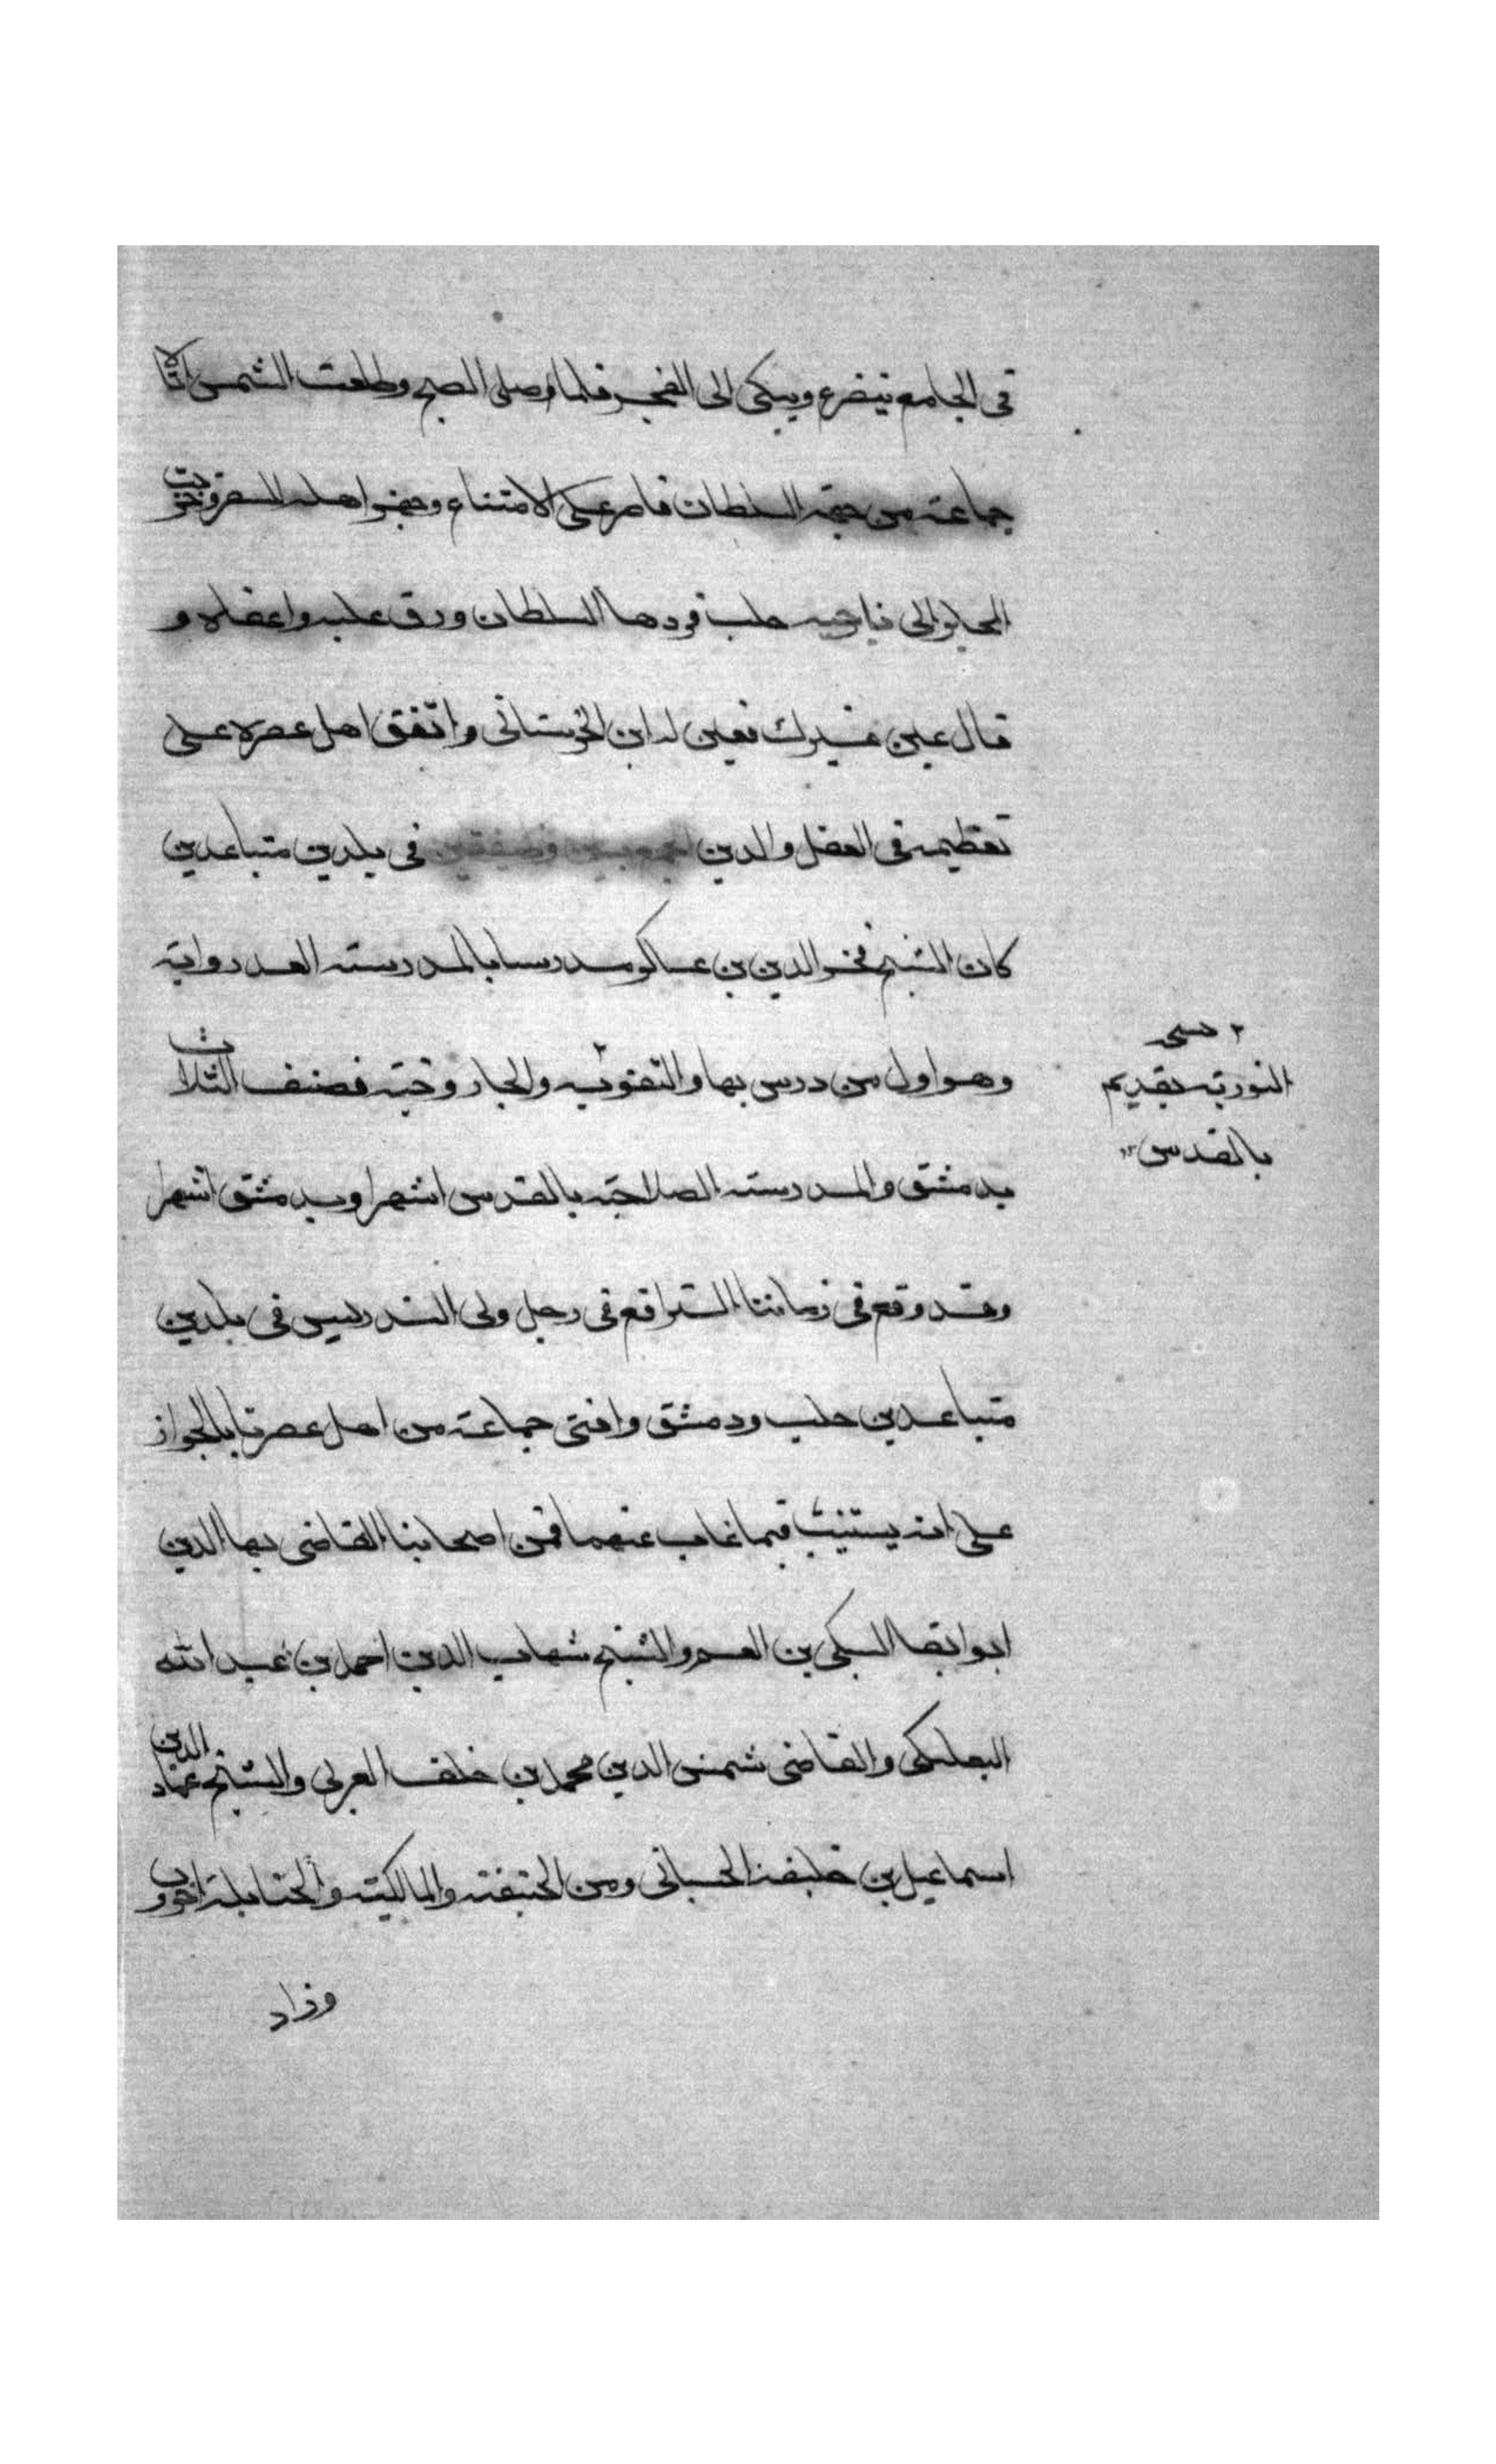 فى الجامع يتضرع ويبكى الى الفجر فلما وصلى الصبح وطلعت الشمس اتاه
جماعة من جهة السلطان فاصر على الامتناع وجهز اهله للسفر وخرجت
المحابر الى ناحية حلب فردها السلطان ورق عليه واعفاه و
قال عين غيرك فعين له ابن الحرستانى واتفق اهل عصره على
تعظيمه فى العقل والدين فى بلدين متباعدين
كان الشيخ فخر الدين بن عساكر مدرسا بالمدرسة العدراوية
وهو اول من درس بها والتقوية ٢ والجاروخية فصنف الثلاث
بدمشق والمدرسة الصلاحية بالقدس اشهرا وبدمشق اشهرا
وقد وقع فى زماننا الترافع فى رجل ولى التدريس فى بلدين
متباعدين حلب ودمشق وافتى جماعة من اهل عصرنا بالجواز
على انه يستنيب فيما غاب عنهما فمن اصحابنا القاضى بها الدين
ابو ابقا السبكى بن العم والشيخ شهاب الدين احمد بن عبد الله
البعلبكى والقاضى شمس الدين محمد بن خلف العربى والشيخ عماد الدين
اسماعيل بن خليفة الحسبانى ومن الحنيفة والمالكية والحنابلة اخرون
وزاد
٢
النورية بقديم
بالقدس ١٢